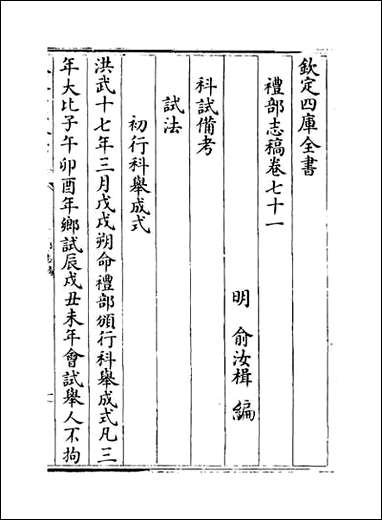 欽定四庫全書
禮部志稿卷七十一
明 俞汝楫 編
科試備考
試法
初行科舉成式
洪武十七年三月戊戌朔命禮部頒行科舉成式凡三
年大比子午卯酉年鄉試辰戌丑未年會試舉人不拘